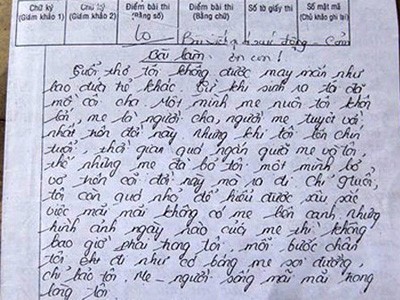 Chữ ký (Giám khảo 1) Chữ ký (Giám khảo 2) Điểm bài thi (Bằng số) Điểm bài thi (Bằng chữ) Số tờ giấy thi Số mật mã (Chủ khảo ghi)
10 Bài viết xúc động - Cảm
Bài làm: ơn con!
Tuổi thơ tôi không được may mắn như
bao đứa trẻ khác. Từ khi sinh ra tôi đã
mồ côi cha. Một mình mẹ nuôi tôi khôn
lớn, mẹ là người cha, người mẹ tuyệt vời
nhất trên đời này nhưng khi tôi lên chín
tuổi, thời gian quá ngắn quá mẹ và tôi,
thế nhưng mẹ đã bỏ tôi một mình bơ
vơ trên cõi đời này mà ra đi. Chỉ 9 tuổi,
tôi còn quá nhỏ để hiểu được sâu sắc
việc mãi mãi không có mẹ bên cạnh, nhưng
hình ảnh ngày nào của mẹ thì không
bao giờ phai trong tôi, mỗi bước chân
tôi khi đi như có bóng mẹ soi đường,
chỉ bảo tôi. Mẹ - người sống mãi mãi trong
lòng tôi.